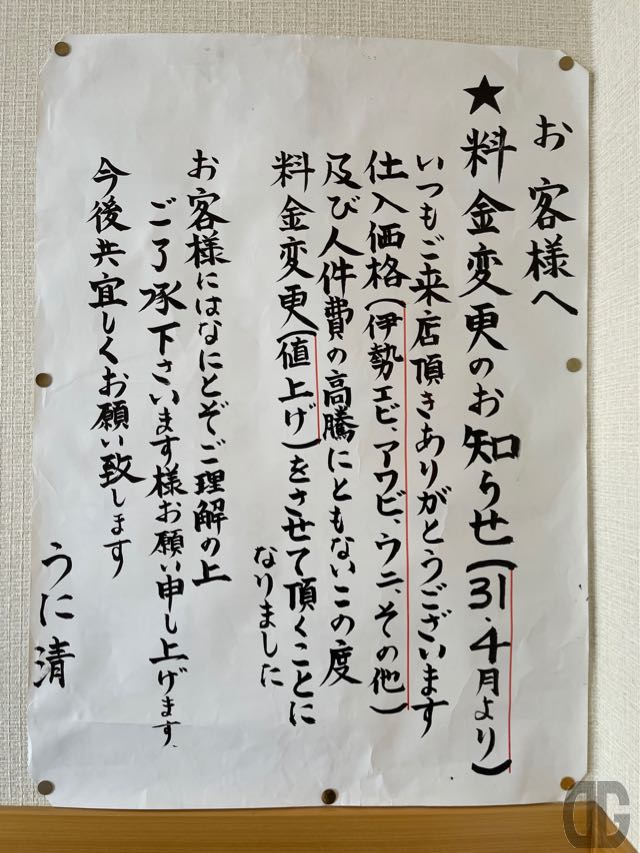 お客様へ
★料金変更のお知らせ(31.4月より)
いつもご来店頂きありがとうございます
仕入価格(伊勢エビ、アワビ、ウニ、その他)
及び人件費の高騰にともないこの度
料金変更(値上げ)をさせて頂くことに
なりました
お客様にはなにとぞご理解の上
ご了承下さいます様お願い申し上げます、
今後共宜しくお願い致します
うに清
DG